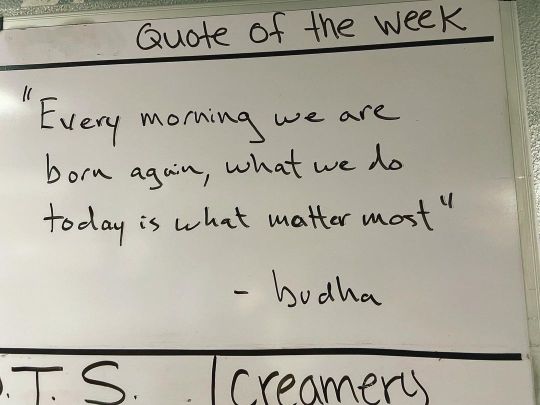 Quote of the week
"Every morning we are
born again, what we do
today is what matter most"
- budha
.T.S. | Creamery